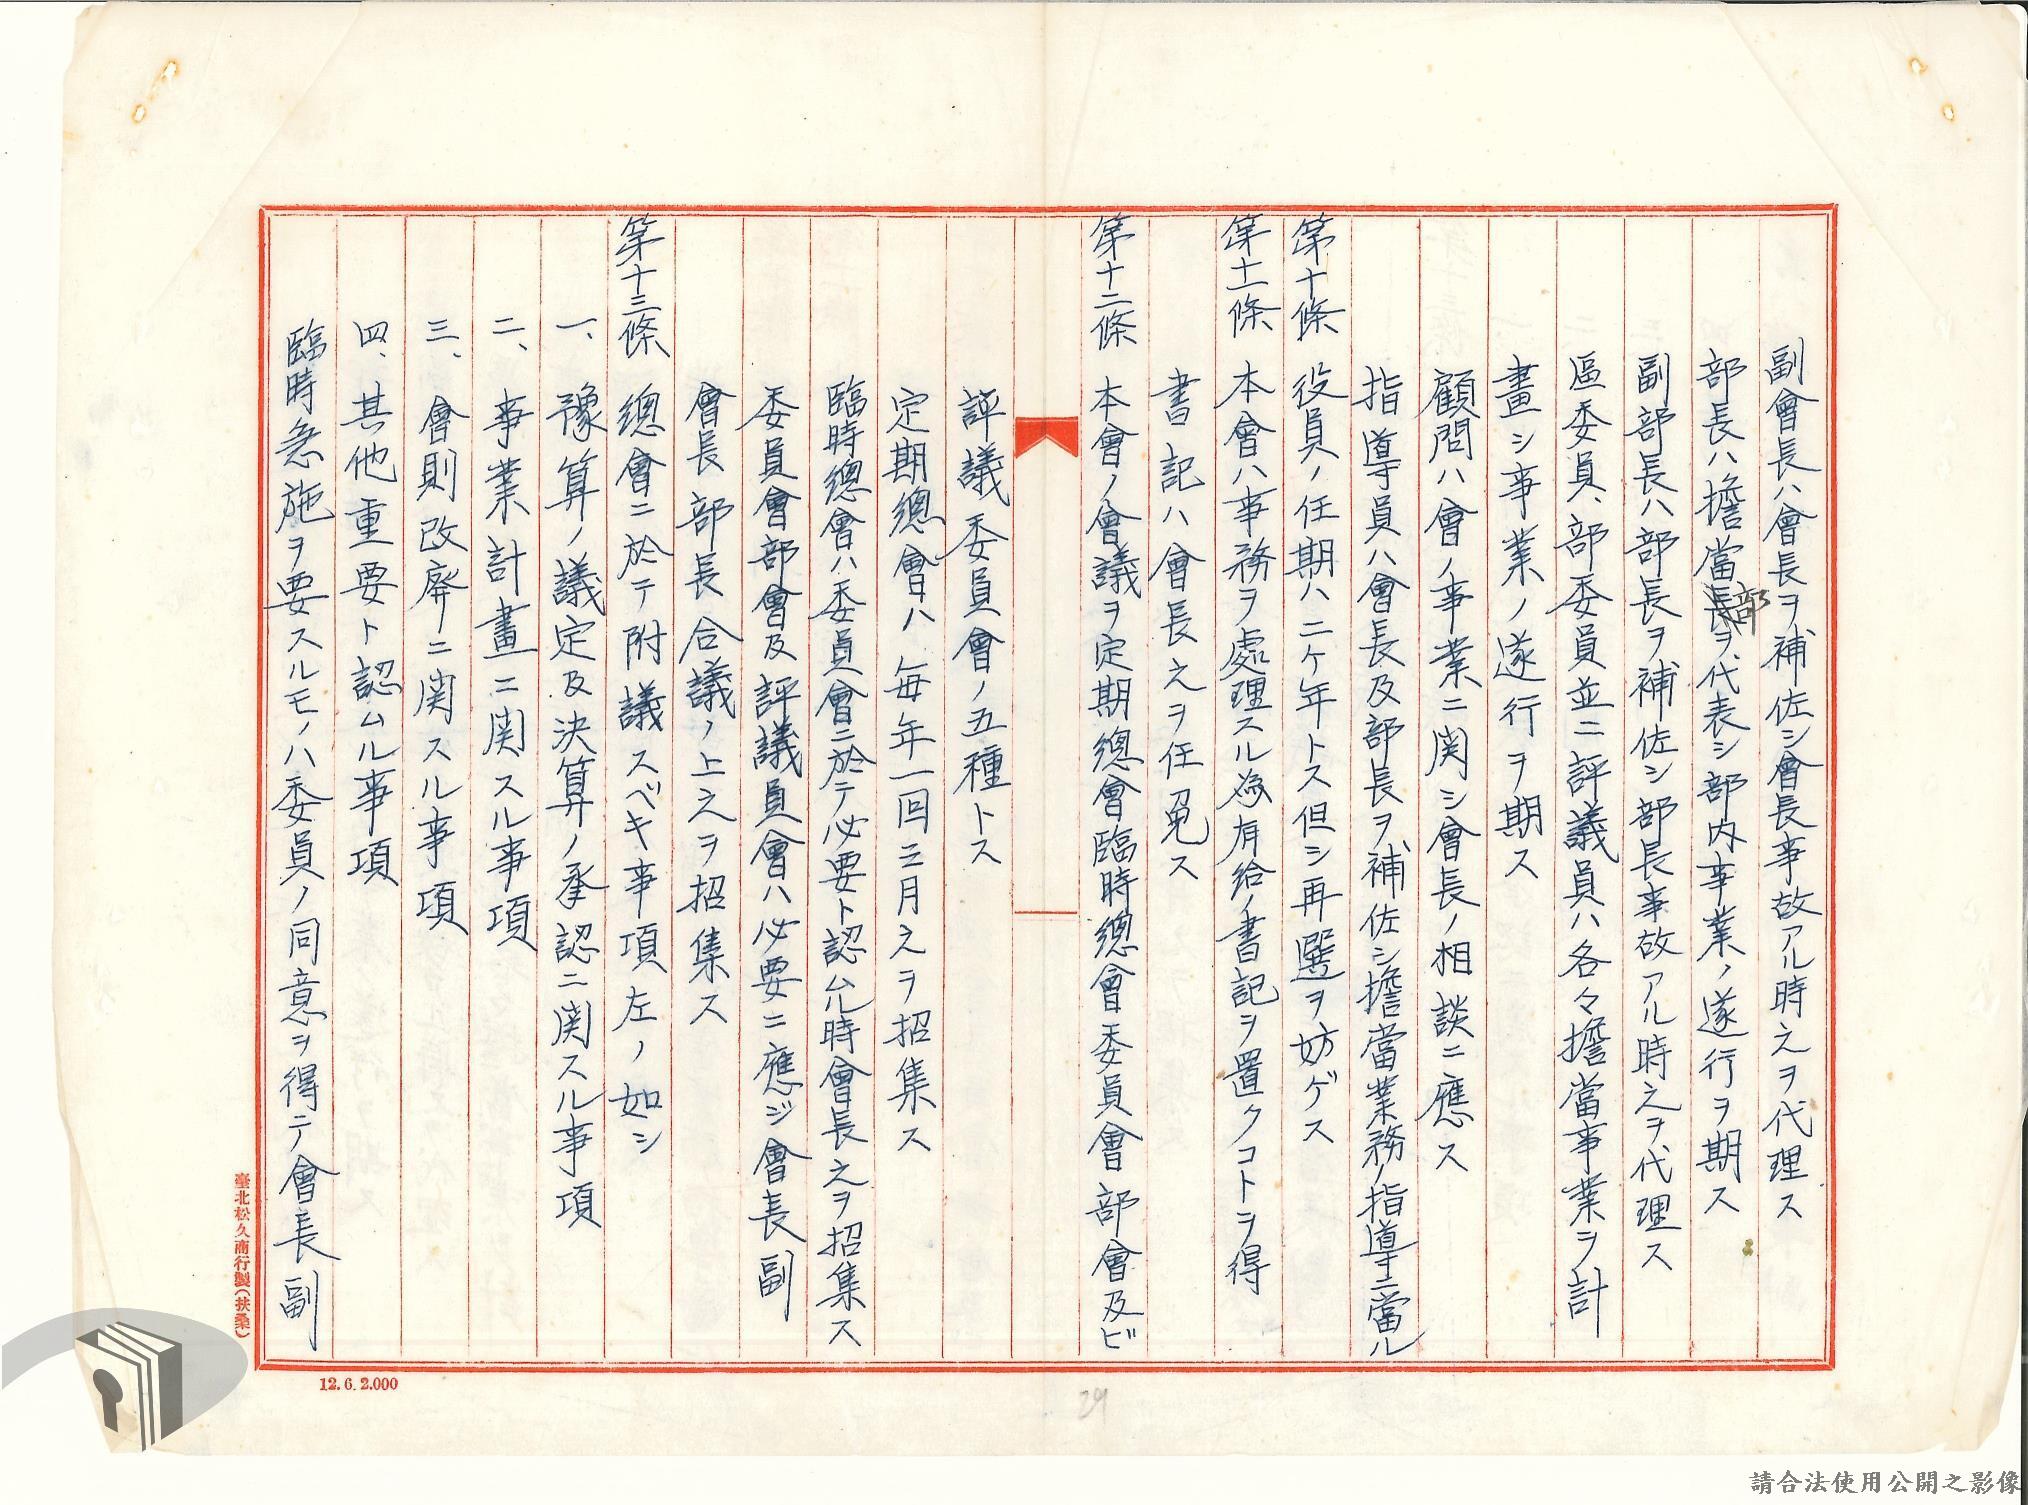 副會長ハ會長ヲ補佐シ會長事故アル時之ヲ代理ス
部長ハ擔當部ヲ代表シ部内事業ノ遂行ヲ期ス
副部長ハ部長ヲ補佐シ部長事故アル時之ヲ代理ス
區委員、部委員並ニ評議員ハ各々擔當事業ヲ計
畫シ事業ノ遂行ヲ期ス
顧問ハ會ノ事業ニ関シ會長ノ相談ニ應ス
指導員ハ會長及部長ヲ補佐シ擔當業務ノ指導ニ當ル
第十條 役員ノ任期ハ二ケ年トス但シ再選ヲ妨ゲス
第十一條 本會ハ事務ヲ處理スル為有給ノ書記ヲ置クコトヲ得
書記ハ會長之ヲ任免ス
第十二條 本會ノ會議ヲ定期總會臨時總會委員會部會及ビ
評議委員會ノ五種トス
定期總會ハ毎年一回三月之ヲ招集ス
臨時總會ハ委員會ニ於テ必要ト認ムル時會長之ヲ招集ス
委員會部會及評議員會ハ必要ニ應ジ會長副
會長部長合議ノ上之ヲ招集ス
第十三條 總會ニ於テ附議スベキ事項左ノ如シ
一、豫算ノ議定及決算ノ承認ニ関スル事項
二、事業計畫ニ関スル事項
三、會則改廃ニ関スル事項
四、其他重要ト認ムル事項
臨時急施ヲ要スルモノハ委員ノ同意ヲ得テ會長副
臺北松久商行製(扶桑)
12.6.2.000
29
請合法使用公開之影像